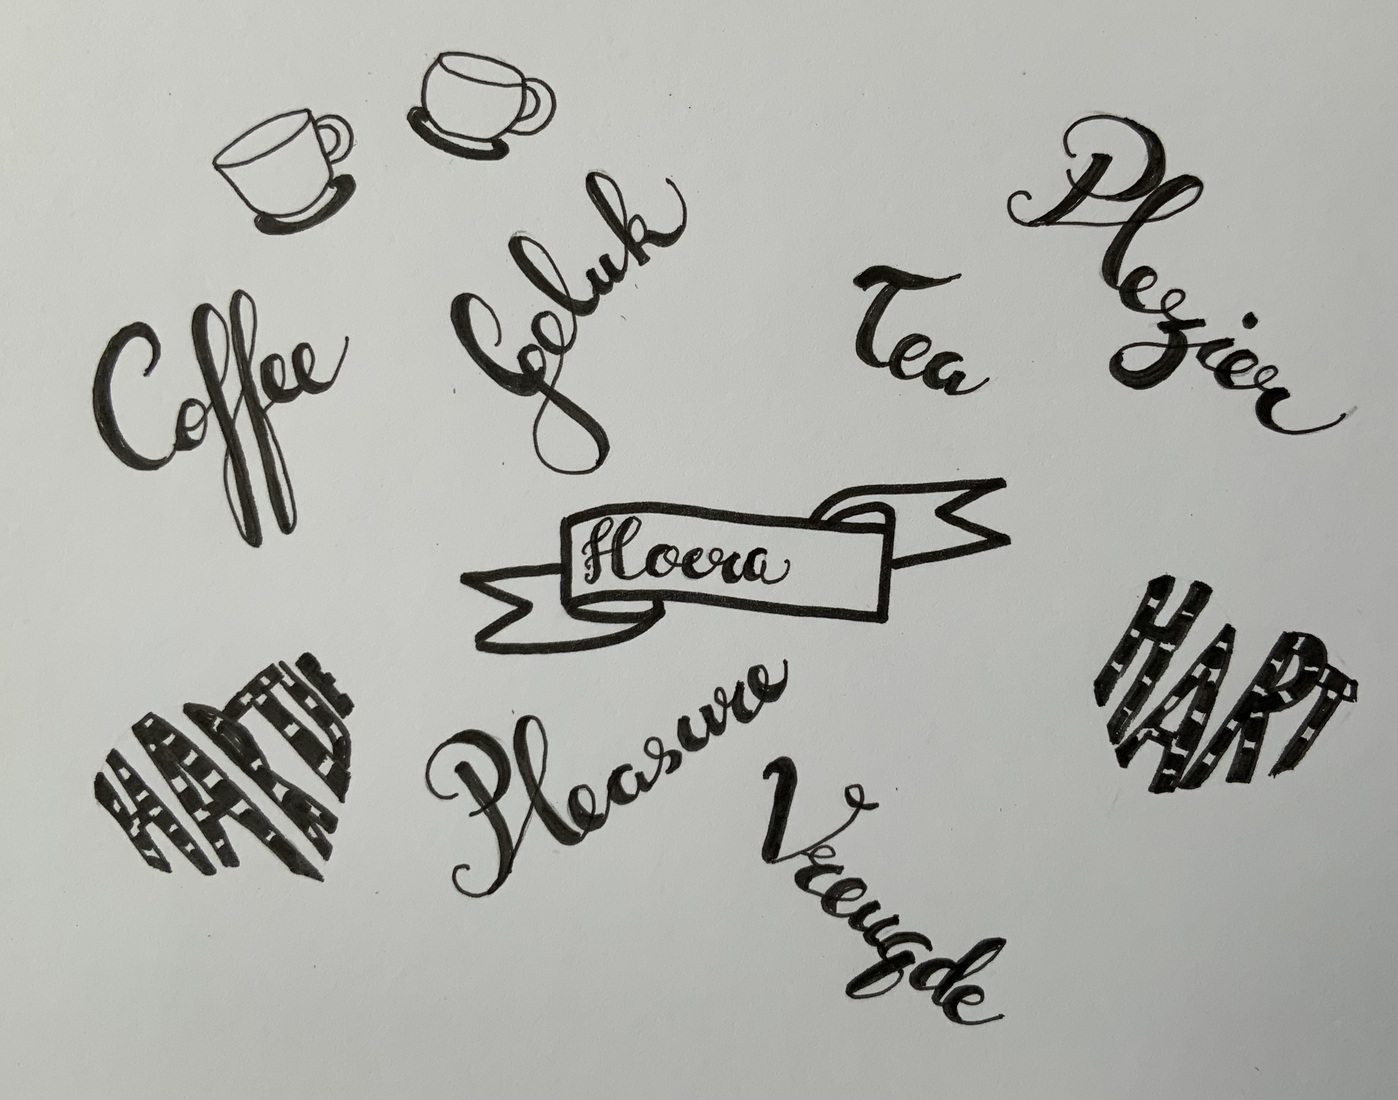 Plezier
Geluk
Tea
Coffee
Hoera
HART
HARTJE
Pleasure
Vreugde